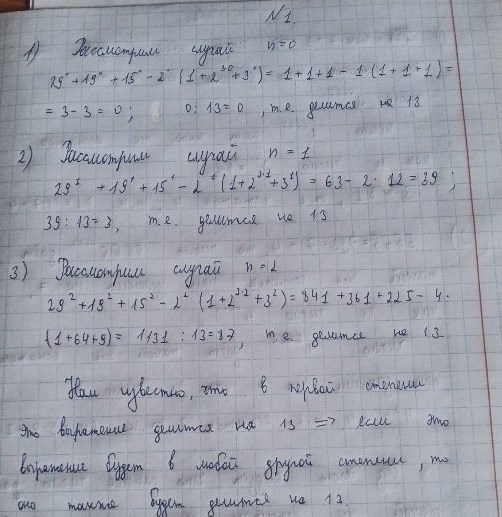 N1.
1) Рассмотрим случай n=0
29⁰ + 19⁰ + 15⁰ - 2⁰ (1+2³·⁰+3⁰) = 1+1+1 - 1 (1+1+1) =
= 3-3 = 0; 0 : 13 = 0, т.е. делится на 13
2) Рассмотрим случай n = 1
29¹ + 19¹ + 15¹ - 2¹ (1+2³·¹+3¹) = 63 - 2 · 12 = 39;
39 : 13 = 3, т.е. делится на 13
3) Рассмотрим случай n = 2
29² + 19² + 15² - 2² (1+2³·²+3²) = 841 + 361 + 225 - 4 ·
(1+64+9) = 1131 : 13 = 87, т.е. делится на 13.
Нам известно, что в первой степени
это выражение делится на 13 => если это
выражение будет в любой другой степени, то
оно также будет делится на 13.